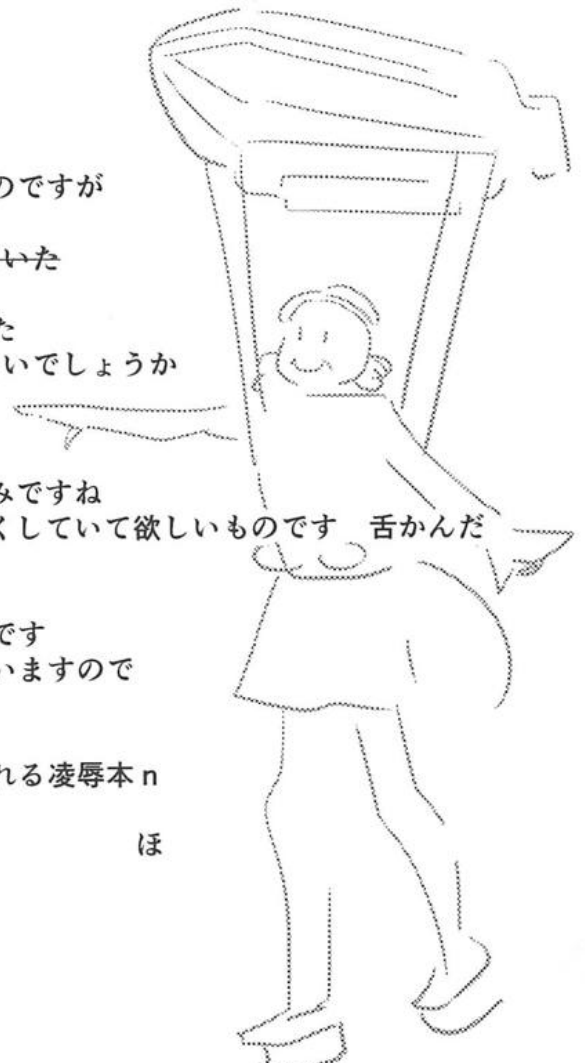 のですが
いた
た
いでしょうか
みですね
くしていて欲しいものです　舌かんだ
です
いますので
れる凌辱本n
ほ